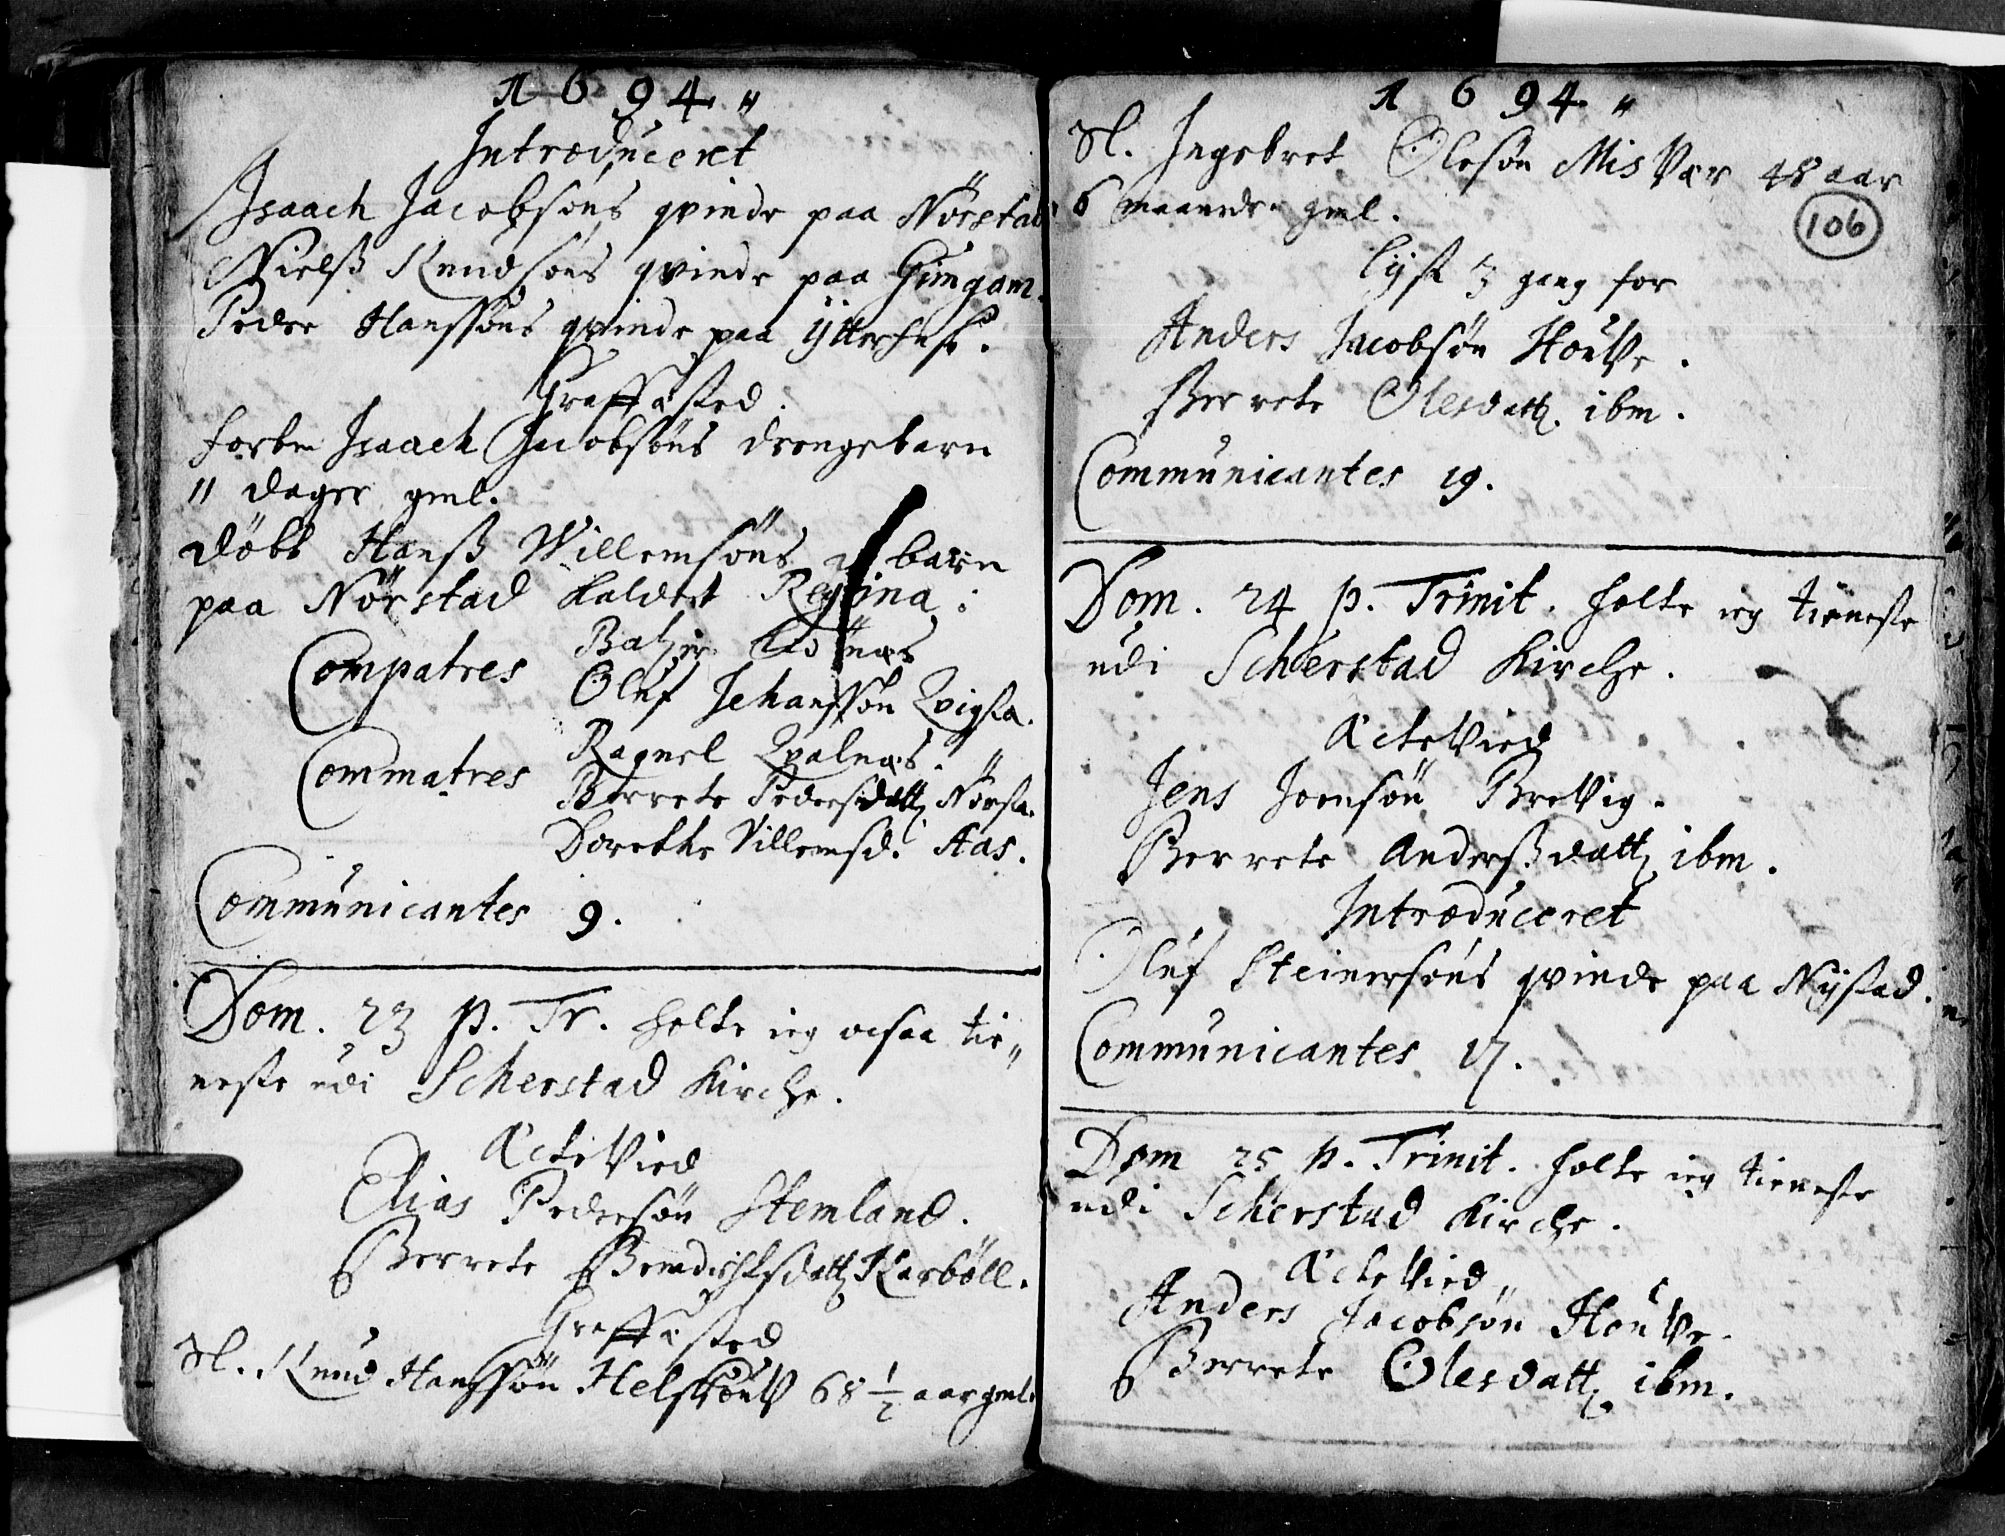 1694.
Introduceret
Isaach Jacobsøns qvinde paa Nørstad
Nielß Knudsøns qvinde paa Gimgam.
Peder Hanssøns qvinde paa Ytterhuse.
Graffæsted.
Isaach Jacobsøns drengebarn
11 dager gml.
Døbt Hanß Willemsøns barn
paa Nørstad kaldet Regina:
Compatres
Oluf Jehanssøn Qvigsta.
Commatres
Ragnel Qvalnæs.
Berrete Pedersdatt, Nørsta.
Dorethe Villemsd. Aas.
Communicantes 9.
Dom. 23 p. Tr. holte ieg ocsaa tie„
neste udi Scherstad Kirche.
ÆcteVied
Elias Pedersøn Stemland.
Berrete Bendichsdatt, Karbøll.
Graffæsted
Sl. Knud Hanssøn Helskouv 68 ½ aar gml.
1694.
Sl. Ingebret Olesøn MisVær 48 aar
6 maaneder gml.
106
lyst 3 gang for
Anders Jacobsøn HouVe.
Berrete Olesdatt, ibm.
Communicantes 19.
Dom. 24 p. Trinit. holte ieg tieneste
udi Scherstad Kirche.
ÆcteVied
Jens Joensøn BreVig.
Berrete Anderßdatt, ibm.
Introduceret
Oluf Steinersøns qvinde paa Nystad.
Communicantes 17.
Dom 25 p. Trinit. holte ieg tieneste
udi Scherstad Kirche.
ÆcteVied
Anders Jacobsøn HouVe.
Berrete Olesdatt, ibm.